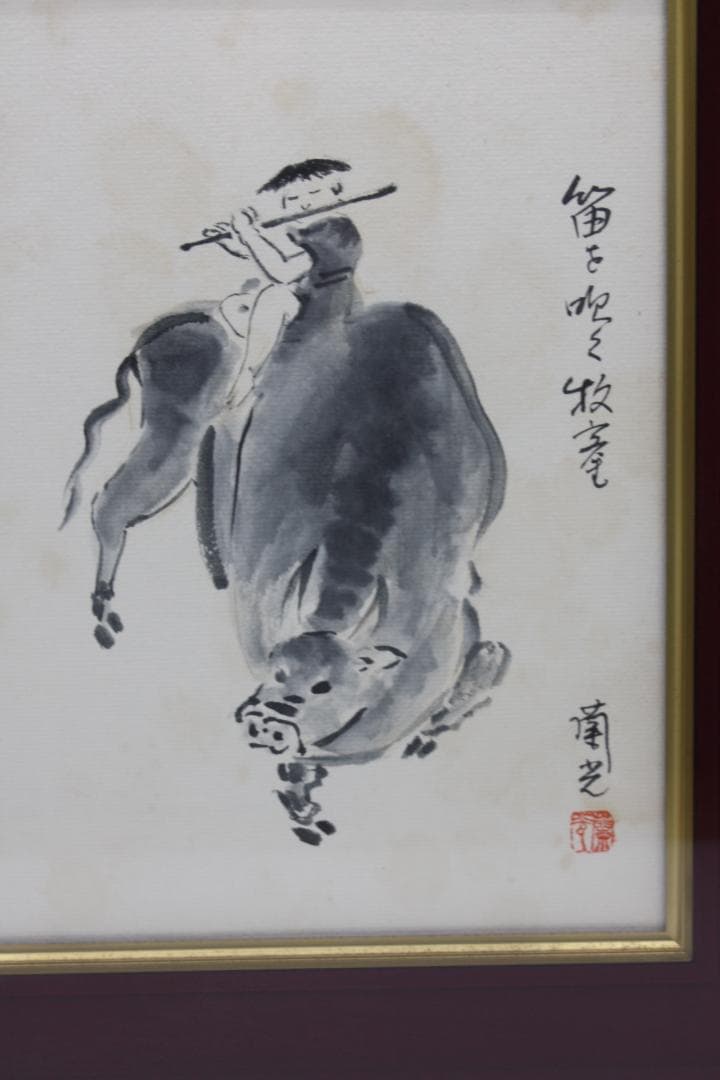 笛を吹く牧童
蘭光